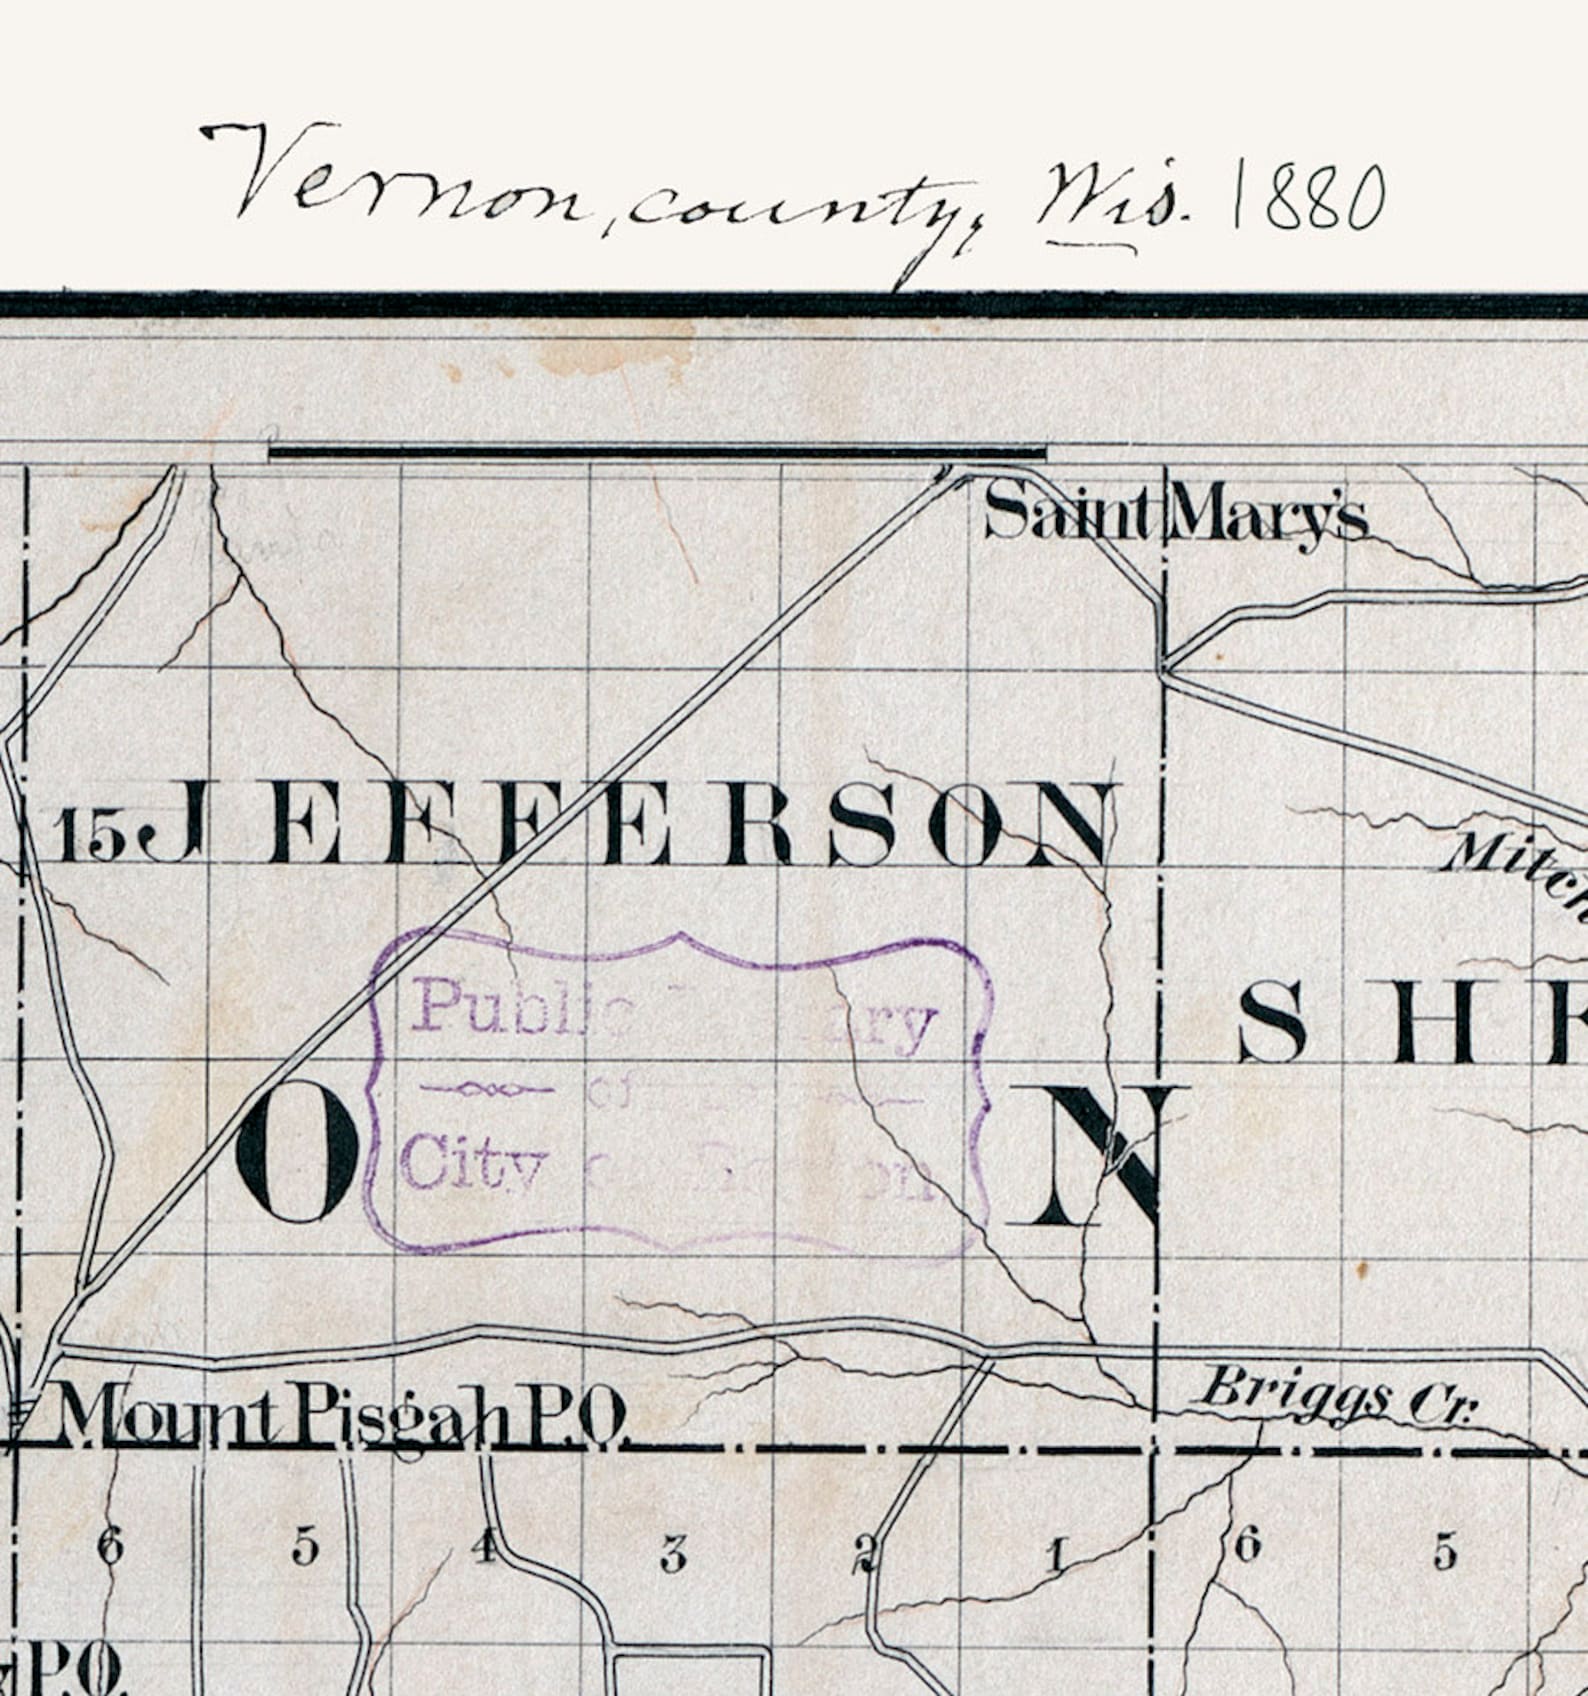 Vernon, county, Wis. 1880
Saint Mary's
15 JEFFERSON
Mitch
SHE
Public ary
of
City
O N
Briggs Cr.
Mount Pisgah P.O.
6 5 4 3 2 1 6 5
P.O.